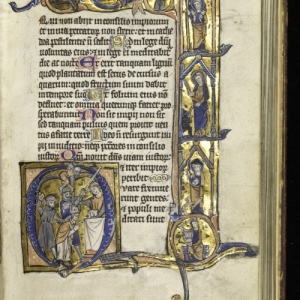 qui non abiit in consilio impiorum
et in uia peccatorum non stetit: et in cathe
dra pestilentie n̄ sedit. Sed in lege dn̄i
uoluntas eius: et in lege ei meditabit
die ac nocte. Et erit tanquam lignum
quod plantatum est secus decursus a
quarum: quod fructum suum dabit
in tempore suo. Et folium eius non
defluet: et omnia quecumque faciet pros
perabuntur. Non sic impii non sic
sed tanquam puluis quem proicit uen
tus a facie terre. Ideo n̄ resurgunt im
pii in iudicio: neq; peccatores in consilio
iustorum. Qm̄ nouit dn̄s uiam iustor:
et iter impior
peribit
uare fremue
runt gentes:
et populi me
ditati sunt